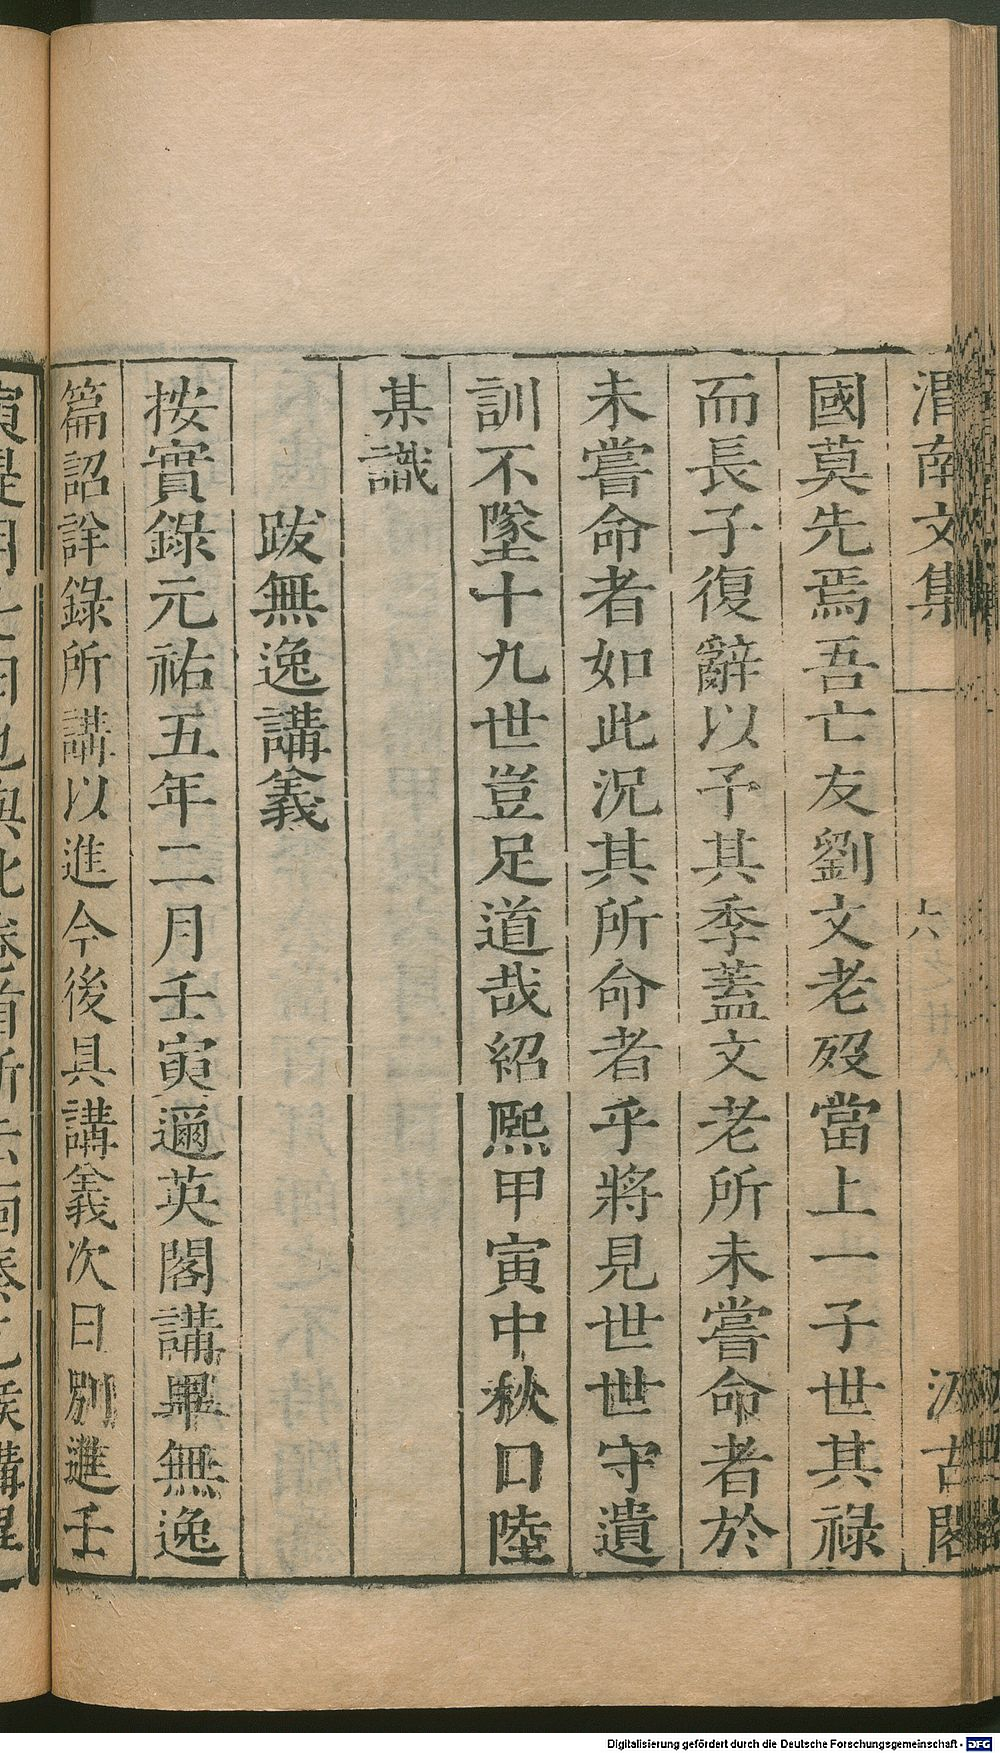 渭南文集
六之廿八
汲古閣
國莫先焉吾亡友劉文老歿當上一子世其祿
而長子復辭以予其季蓋文老所未嘗命者於
未嘗命者如此況其所命者乎將見世世守遺
訓不墜十九世豈足道哉紹熙甲寅中秋口陸
某識
跋無逸講義
按實錄元祐五年二月壬寅邇英閣講畢無逸
篇詔詳錄所講以進今後具講義次日別進壬
Digitalisierung gefördert durch die Deutsche Forschungsgemeinschaft - DFG